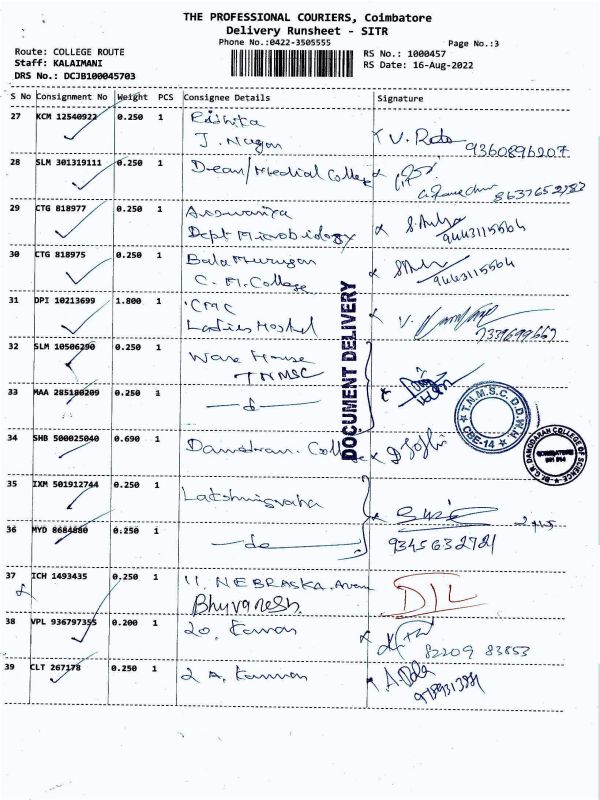 THE PROFESSIONAL COURIERS, Coimbatore
Delivery Runsheet - SITR
Phone No.:0422-3505555
Page No.:3
Route: COLLEGE ROUTE
RS No.: 1000457
Staff: KALAIMANI
RS Date: 16-Aug-2022
DRS No.: DCJB100045703
S No Consignment No Weight PCS Consignee Details Signature
27 KCM 12540922 0.250 1
J. Nagar
V. 9360896207
28 SLM 301319111 0.250 1 Dean/Medical College
8637652782
29 CTG 818977 0.250 1 Aiswariya
Dept Microbiology
9443115564
30 CTG 818975 0.250 1 Bala Murugan
C. M. College
9443115564
31 DPI 10213699 1.800 1 CMC
Ladies Hostel
V.
32 SLM 10506290 0.250 1 Ware House
TNMSC
33 MAA 285180209 0.250 1
DOCUMENT DELIVERY
T.N.M.S.C. D.D.W.H
CBE-14
34 SHB 500025040 0.690 1 College
DAMODARAN COLLEGE OF SCIENCE
35 IXM 501912744 0.250 1
36 MYD 8684880 0.250 1 do
9345632721
37 ICH 1493435 0.250 1 11, NEBRASKA.
Bhuvanesh.
D/L
38 VPL 936797355 0.200 1 20,
82209 83853
39 CLT 267178 0.250 1 2 A, Kannan